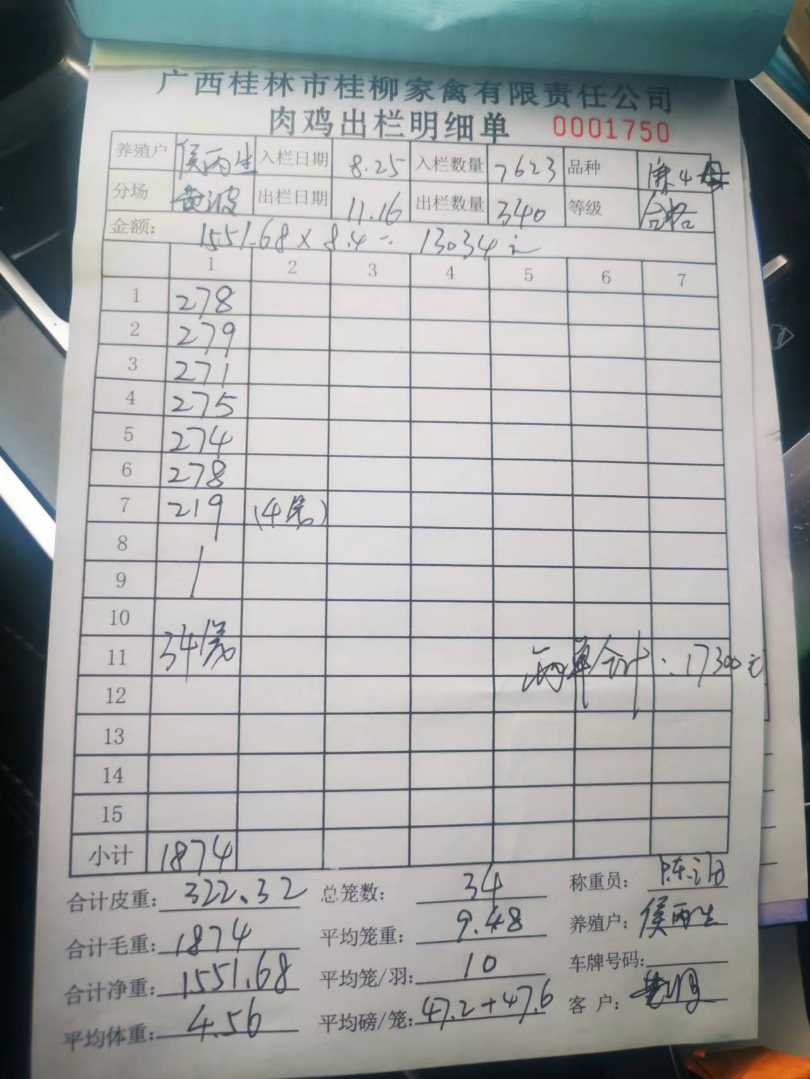 广西桂林市桂柳家禽有限责任公司
肉鸡出栏明细单 0001750
养殖户 侯丙生 入栏日期 8.25 入栏数量 7623 品种 麻4母
分场 出栏日期 11.16 出栏数量 340 等级 合格
金额: 1551.68 × 8.4 = 13034元
1 2 3 4 5 6 7
1 278
2 279
3 271
4 275
5 274
6 278
7 219 (4笼)
8
9
10
11 34笼 两单合计: 17300元
12
13
14
15
小计 1874
合计皮重: 322.32 总笼数: 34 称重员:
合计毛重: 1874 平均笼重: 9.48 养殖户: 侯丙生
合计净重: 1551.68 平均笼/羽: 10 车牌号码:
平均体重: 4.56 平均磅/笼: 47.2+47.6 客户: